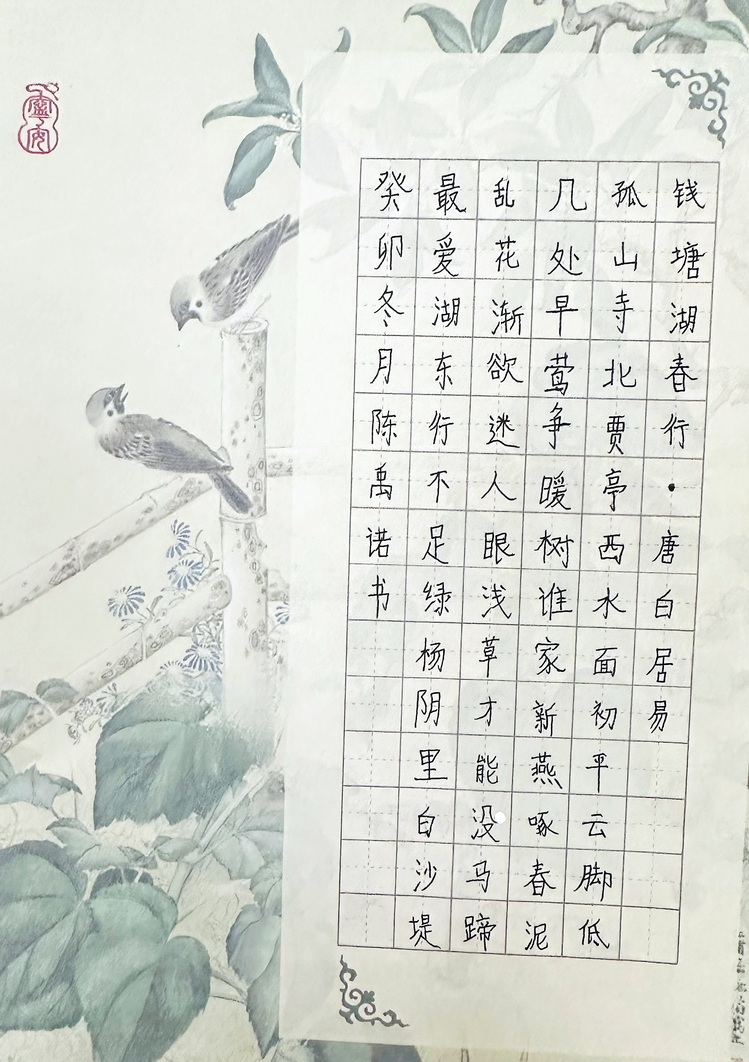 钱塘湖春行·唐白居易
孤山寺北贾亭西水面初平云脚低
几处早莺争暖树谁家新燕啄春泥
乱花渐欲迷人眼浅草才能没马蹄
最爱湖东行不足绿杨阴里白沙堤
癸卯冬月陈禹诺书